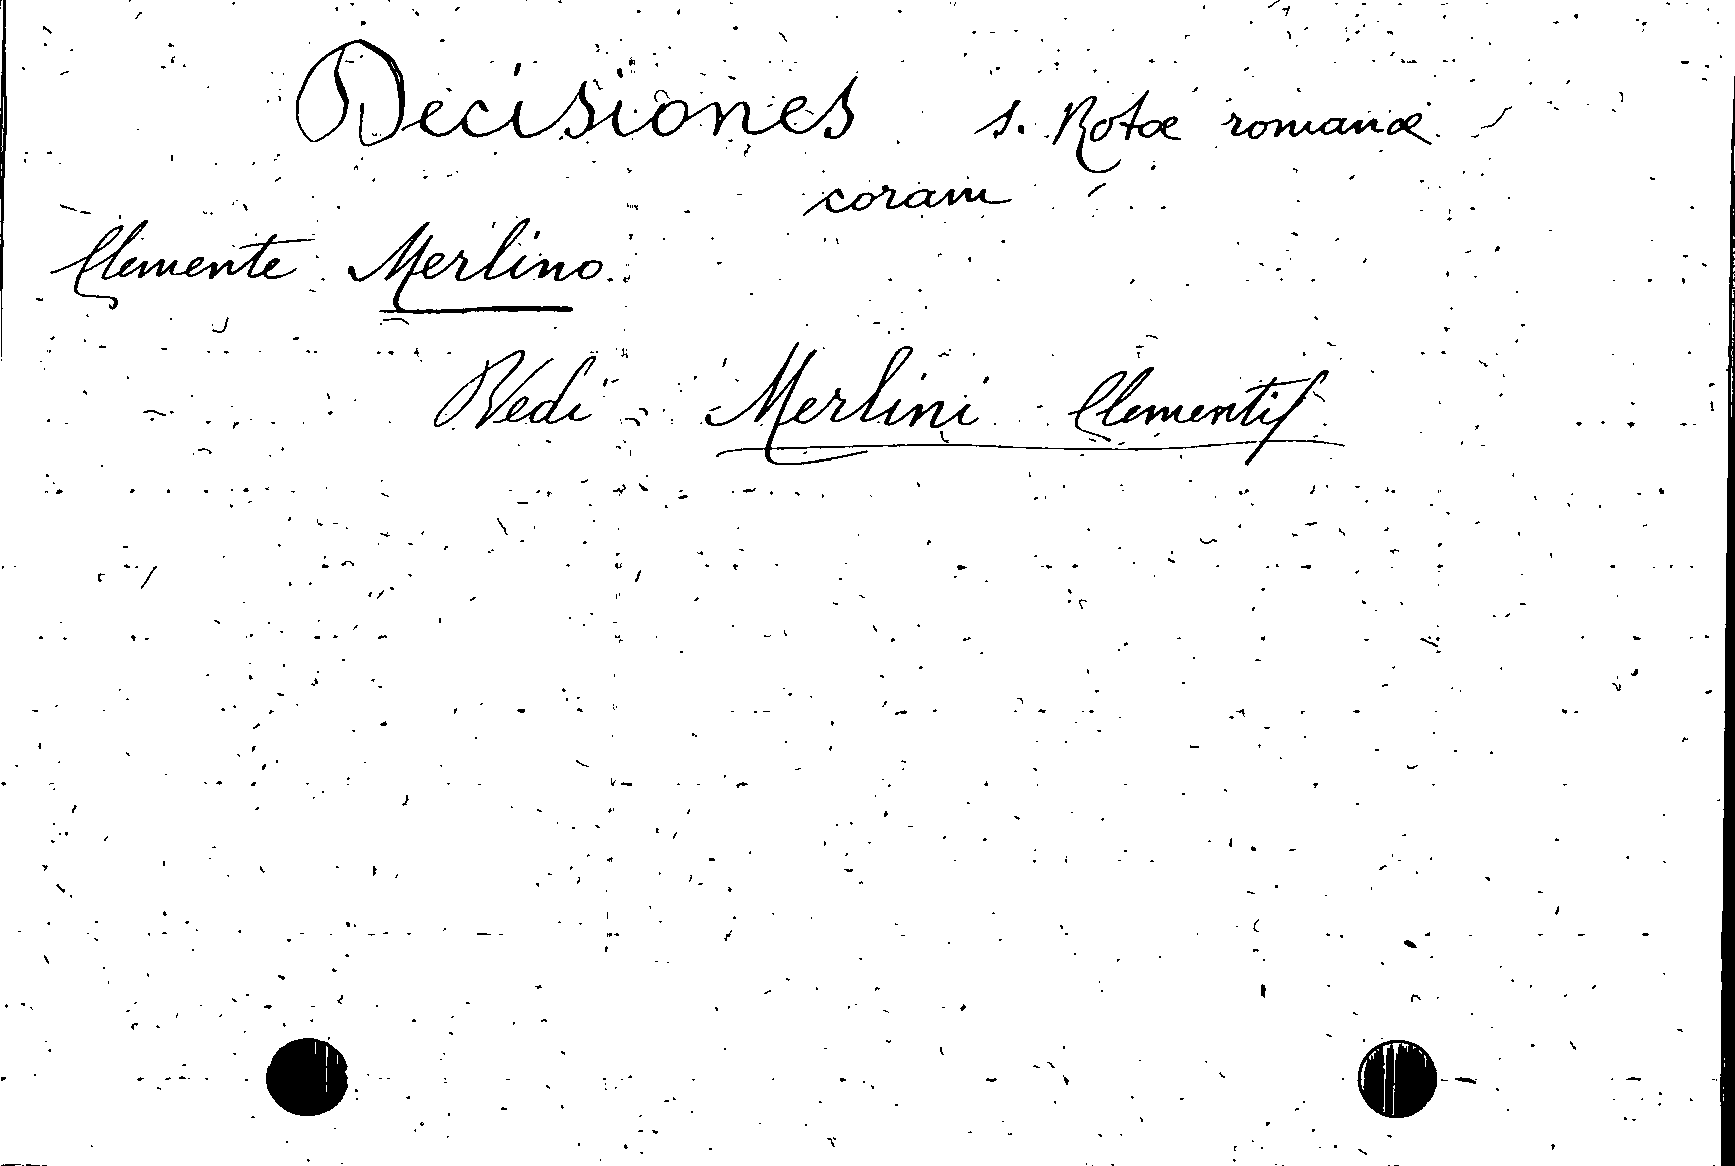 Decisiones s. Rotæ romanæ
coram
Clemente Merlino.
Vedi Merlini Clementis